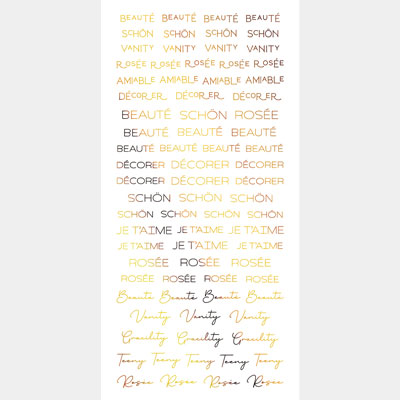 BEAUTÉ BEAUTÉ BEAUTÉ BEAUTÉ
SCHÖN SCHÖN SCHÖN SCHÖN
VANITY VANITY VANITY VANITY
ROSÉE ROSÉE ROSÉE ROSÉE
AMIABLE AMIABLE AMIABLE AMIABLE
DÉCORER DÉCORER DÉCORER
BEAUTÉ SCHÖN ROSÉE
BEAUTÉ BEAUTÉ BEAUTÉ
BEAUTÉ BEAUTÉ BEAUTÉ BEAUTÉ
DÉCORER DÉCORER DÉCORER
DÉCORER DÉCORER DÉCORER
SCHÖN SCHÖN SCHÖN
SCHÖN SCHÖN SCHÖN SCHÖN
JE T'AIME JE T'AIME JE T'AIME
JE T'AIME JE T'AIME JE T'AIME
ROSÉE ROSÉE ROSÉE
ROSÉE ROSÉE ROSÉE ROSÉE
Beaute Beaute Beaute Beaute
Vanity Vanity Vanity
Gracility Gracility Gracility
Teeny Teeny Teeny Teeny Teeny
Rosée Rosée Rosée Rosée